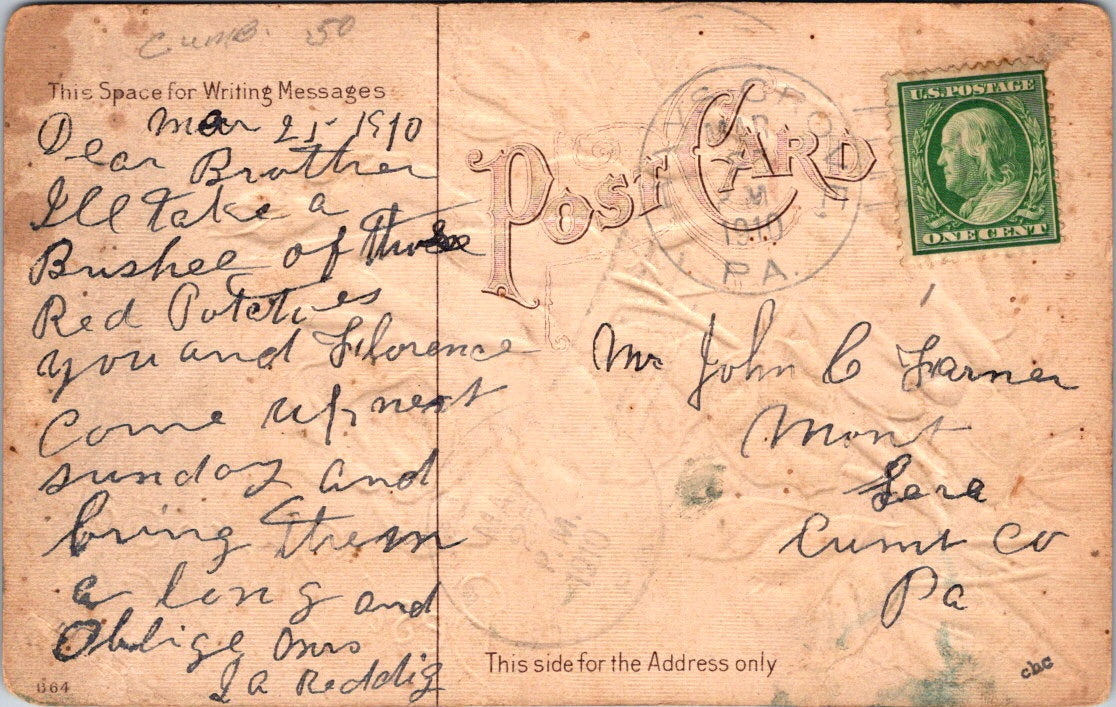 Cumb. 50
This Space for Writing Messages
Mar 25 1910
Dear Brother
Ill take a
Bushel of those
Red Potatoes
you and Florence
come up next
sunday and
bring them
a long and
Oblige Mrs
J A Reddig
664
POST CARD
MAR
M
1910
PA.
U.S. POSTAGE
ONE CENT
Mr John C Farner
Mont
Sera
Cumb Co
Pa
MAR
P.M.
1910
This side for the Address only
cbc